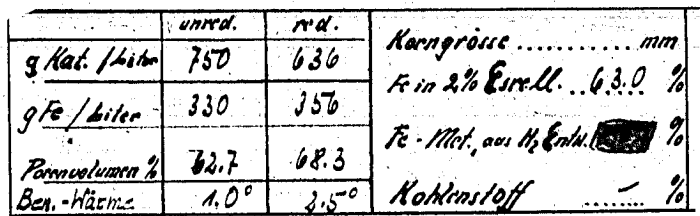 unred. red.
g Kat. / Liter 750 636
g Fe / Liter 330 356
Porenvolumen % 62.7 68.3
Ben.-Wärme 1.0° 2.5°
Korngrösse .......... mm
Fe in 2% 63.0 %
Fe - Met., aus H₂ Entw. %
Kohlenstoff ..–.. %